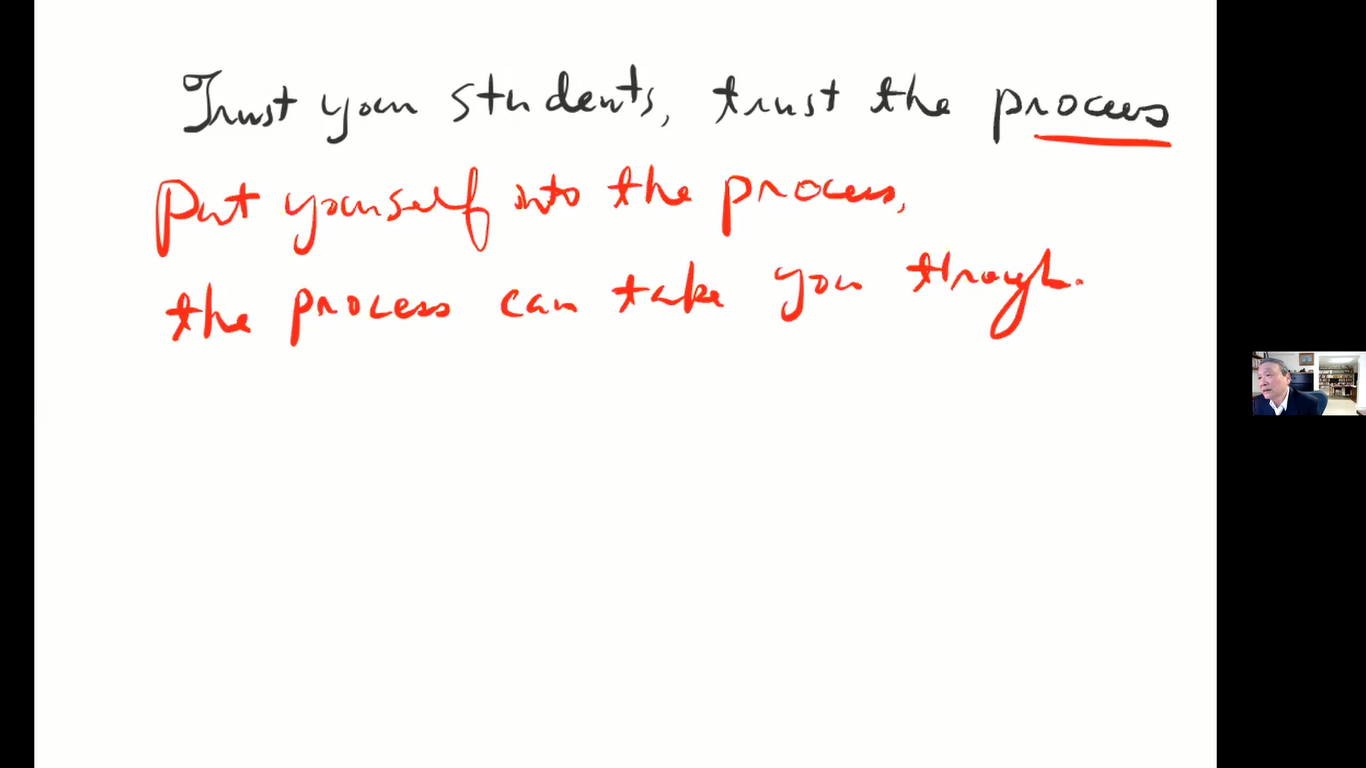 Trust your students, trust the process
Put yourself into the process,
the process can take you through.